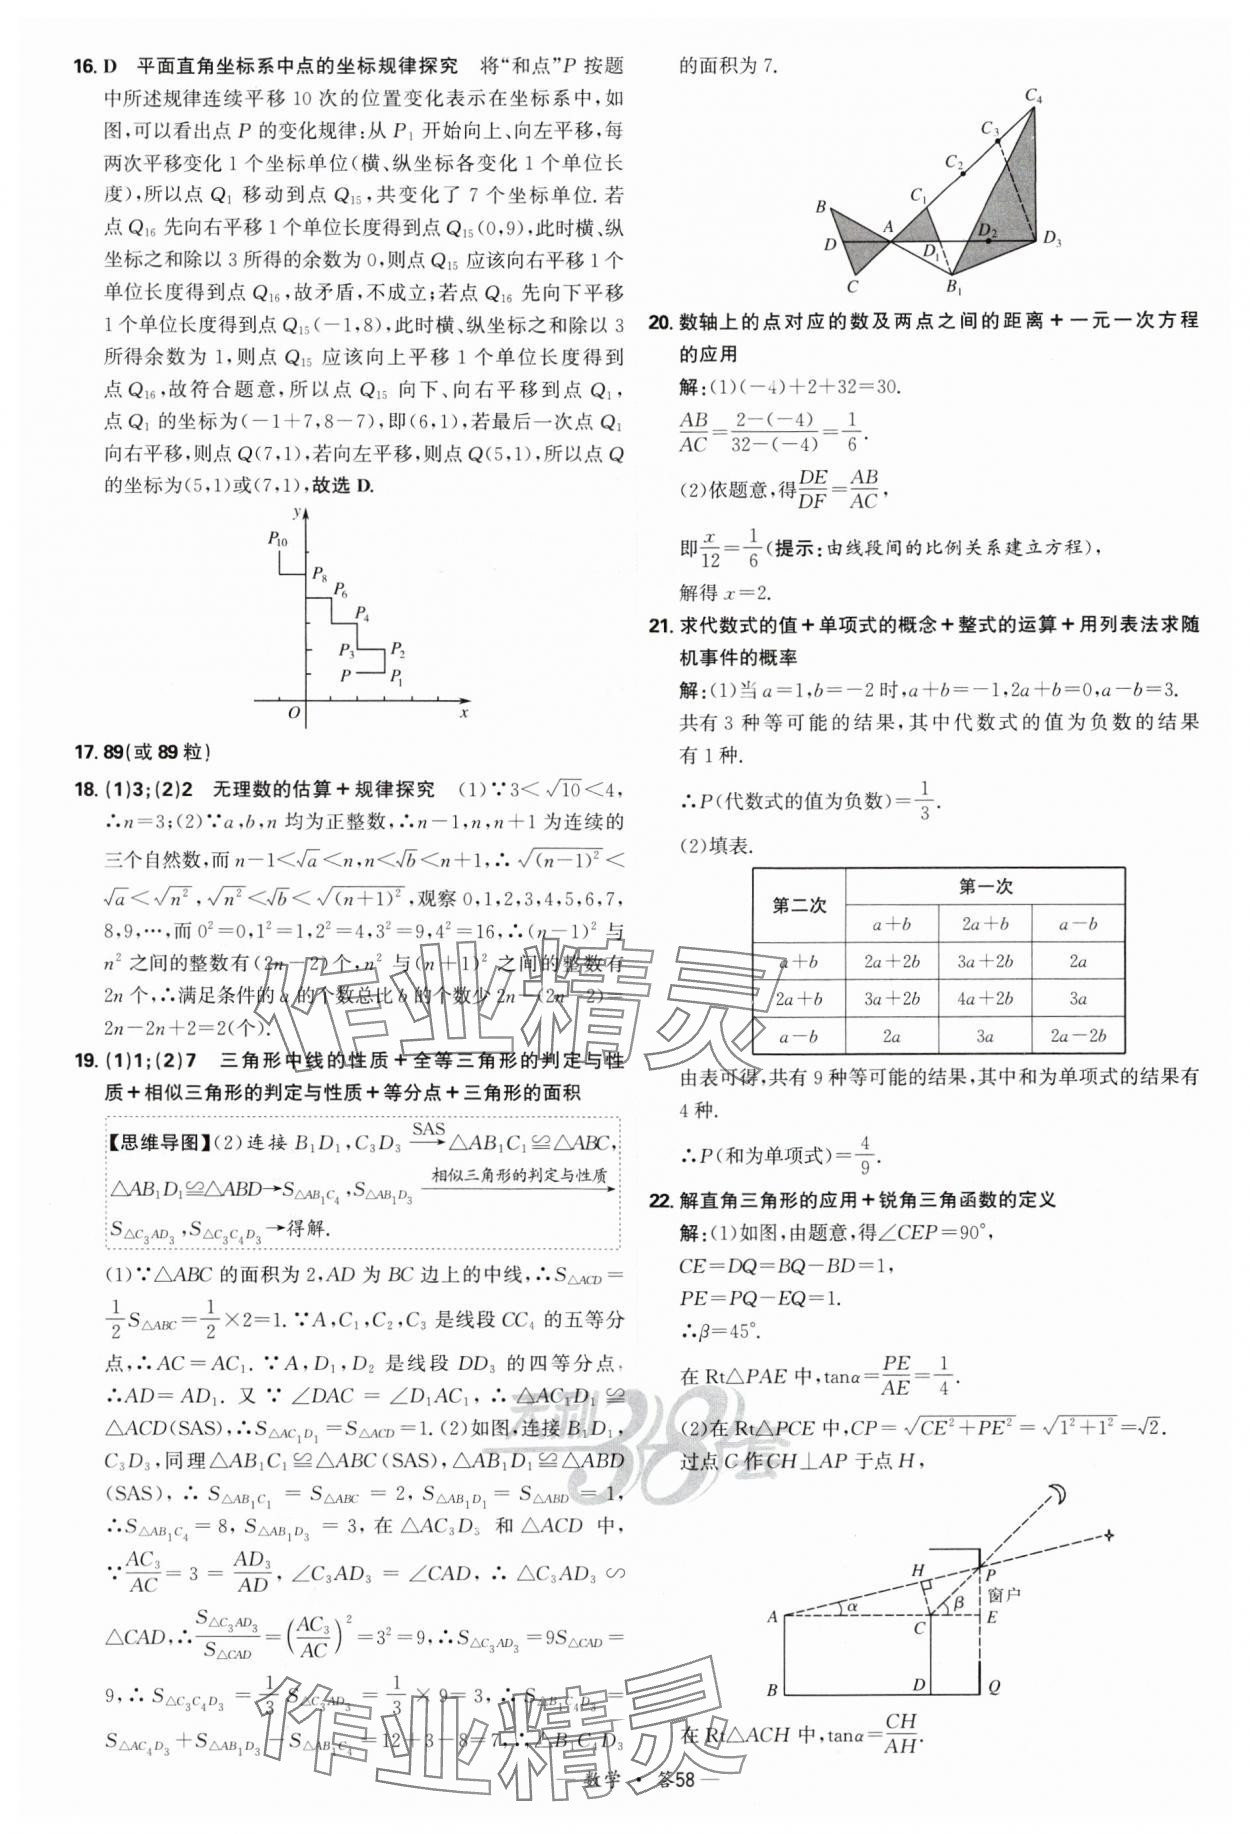 16. D 平面直角坐标系中点的坐标规律探究 将“和点”P 按题
中所述规律连续平移 10 次的位置变化表示在坐标系中,如
图,可以看出点 P 的变化规律:从 P₁ 开始向上、向左平移,每
两次平移变化 1 个坐标单位(横、纵坐标各变化 1 个单位长
度),所以点 Q₁ 移动到点 Q₁₅,共变化了 7 个坐标单位. 若
点 Q₁₆ 先向右平移 1 个单位长度得到点 Q₁₅(0,9),此时横、纵
坐标之和除以 3 所得的余数为 0,则点 Q₁₅ 应该向右平移 1 个
单位长度得到点 Q₁₆,故矛盾,不成立;若点 Q₁₆ 先向下平移
1 个单位长度得到点 Q₁₅(-1,8),此时横、纵坐标之和除以 3
所得余数为 1,则点 Q₁₅ 应该向上平移 1 个单位长度得到
点 Q₁₆,故符合题意,所以点 Q₁₅ 向下、向右平移到点 Q₁,
点 Q₁ 的坐标为(-1+7,8-7),即(6,1),若最后一次点 Q₁
向右平移,则点 Q(7,1),若向左平移,则点 Q(5,1),所以点 Q
的坐标为(5,1)或(7,1),故选 D.
y
P₁₀
P₈
P₆
P₄
P₃ P₂
P P₁
O x
17. 89(或 89 粒)
18. (1)3;(2)2 无理数的估算+规律探究 (1)∵3<√10<4,
∴n=3;(2)∵a,b,n 均为正整数,∴n-1,n,n+1 为连续的
三个自然数,而 n-1<√a<n,n<√b<n+1,∴√(n-1)²<
√a<√n²,√n²<√b<√(n+1)²,观察 0,1,2,3,4,5,6,7,
8,9,…,而 0²=0,1²=1,2²=4,3²=9,4²=16,∴(n-1)² 与
n² 之间的整数有(2n-2)个,n² 与(n+1)² 之间的整数有
2n 个,∴满足条件的 a 的个数总比 b 的个数少 2n-(2n-2)=
2n-2n+2=2(个).
19. (1)1;(2)7 三角形中线的性质+全等三角形的判定与性
质+相似三角形的判定与性质+等分点+三角形的面积
【思维导图】(2)连接 B₁D₁,C₃D₃ —SAS→ △AB₁C₁≌△ABC,
△AB₁D₁≌△ABD→S△AB₁C₄,S△AB₁D₃ —相似三角形的判定与性质→
S△C₃AD₃,S△C₃C₄D₃→得解.
(1)∵△ABC 的面积为 2,AD 为 BC 边上的中线,∴S△ACD=
1/2 S△ABC=1/2×2=1. ∵A,C₁,C₂,C₃ 是线段 CC₄ 的五等分
点,∴AC=AC₁. ∵A,D₁,D₂ 是线段 DD₃ 的四等分点,
∴AD=AD₁. 又∵∠DAC=∠D₁AC₁,∴△AC₁D₁≌
△ACD(SAS),∴S△AC₁D₁=S△ACD=1. (2)如图,连接 B₁D₁,
C₃D₃,同理△AB₁C₁≌△ABC(SAS),△AB₁D₁≌△ABD
(SAS),∴S△AB₁C₁=S△ABC=2,S△AB₁D₁=S△ABD=1,
∴S△AB₁C₄=8,S△AB₁D₃=3,在△AC₃D₃ 和△ACD 中,
∵AC₃/AC=3=AD₃/AD,∠C₃AD₃=∠CAD,∴△C₃AD₃∽
△CAD,∴S△C₃AD₃/S△CAD=(AC₃/AC)²=3²=9,∴S△C₃AD₃=9S△CAD=
9,∴S△C₃C₄D₃=1/3 S△C₃AD₃=1/3×9=3,∴S△B₁C₄D₃=
S△AC₄D₃+S△AB₁D₃-S△AB₁C₄=12+3-8=7,∴△B₁C₄D₃
的面积为 7.
C₄
C₃
C₂
B C₁
A
D D₁ D₂ D₃
C B₁
20. 数轴上的点对应的数及两点之间的距离+一元一次方程
的应用
解:(1)(-4)+2+32=30.
AB/AC=2-(-4)/32-(-4)=1/6.
(2)依题意,得DE/DF=AB/AC,
即x/12=1/6(提示:由线段间的比例关系建立方程),
解得 x=2.
21. 求代数式的值+单项式的概念+整式的运算+用列表法求随
机事件的概率
解:(1)当 a=1,b=-2 时,a+b=-1,2a+b=0,a-b=3.
共有 3 种等可能的结果,其中代数式的值为负数的结果
有 1 种.
∴P(代数式的值为负数)=1/3.
(2)填表.
第二次 第一次
a+b 2a+b a-b
a+b 2a+2b 3a+2b 2a
2a+b 3a+2b 4a+2b 3a
a-b 2a 3a 2a-2b
由表可得,共有 9 种等可能的结果,其中和为单项式的结果有
4 种.
∴P(和为单项式)=4/9.
22. 解直角三角形的应用+锐角三角函数的定义
解:(1)如图,由题意,得∠CEP=90°,
CE=DQ=BQ-BD=1,
PE=PQ-EQ=1.
∴β=45°.
在 Rt△PAE 中,tanα=PE/AE=1/4.
(2)在 Rt△PCE 中,CP=√CE²+PE²=√1²+1²=√2.
过点 C 作 CH⊥AP 于点 H,
H P
窗户
A α C β E
B D Q
在 Rt△ACH 中,tanα=CH/AH.
— 数学 · 答58 —
作业精灵
作业精灵
38套